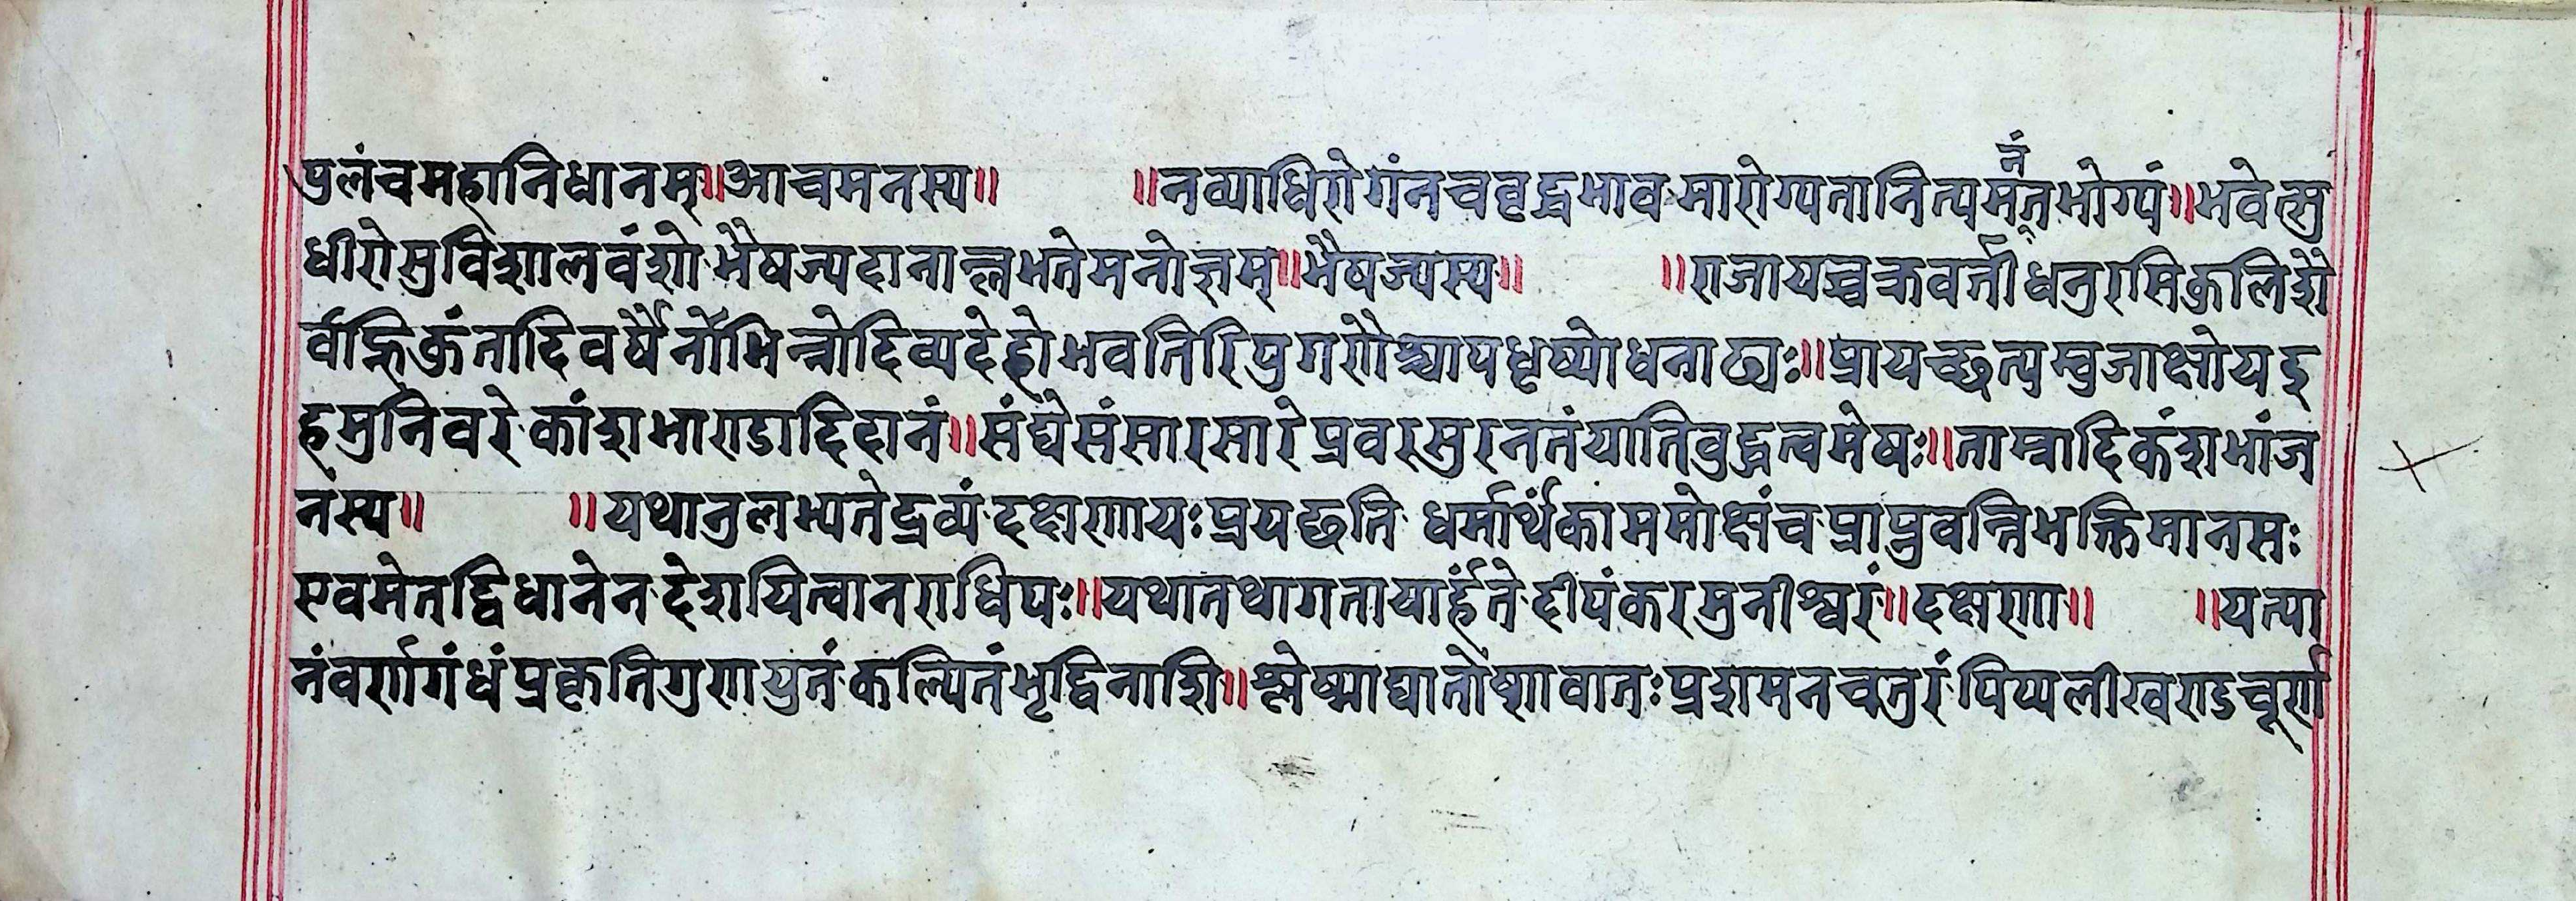 पुलंचमहानिधानम्॥आचमनस्य॥ ॥नव्याधिरोगंनचवृद्धभावमारोग्यतानित्यमनंतभोग्यं॥भवेत्सु
धीरोसुविशालवंशोभैषज्यदानाल्लभतेमनोज्ञम्॥भैषज्यस्य॥ ॥राजायच्चक्रवर्तीधनुरसिकुलिशै
र्वह्निकुंतादिवर्षैर्नोभिन्नोदिव्यदेहोभवतिरिपुगणैश्चापधृष्योधनाढ्यः॥प्रायच्छत्यम्बुजाक्षोयद्
हमुनिवरेकांशभाण्डादिदानं॥संघेसंसारसारेप्रवरसुरनतंयातिवुद्धत्वमेषः॥ताम्रादिकंशभांज
नस्य॥ ॥यथानुलभ्यतेद्रव्यंदक्षणायःप्रयछति धर्मार्थंकाममोक्षंचप्राप्नुवन्तिभक्तिमानसः
एवमेतद्विधानेनदेशयित्वानराधिपः॥यथातथागतायार्हंतेदीपंकरमुनीश्वरं॥दक्षणा॥ ॥यत्पा
नंवर्णगंधंप्रकृतिगुणयुतंकल्पितंभृद्विनाशि॥श्लेष्माद्यातोष्णवातःप्रशमनचतुरंपिप्पलीखण्डचूर्ण